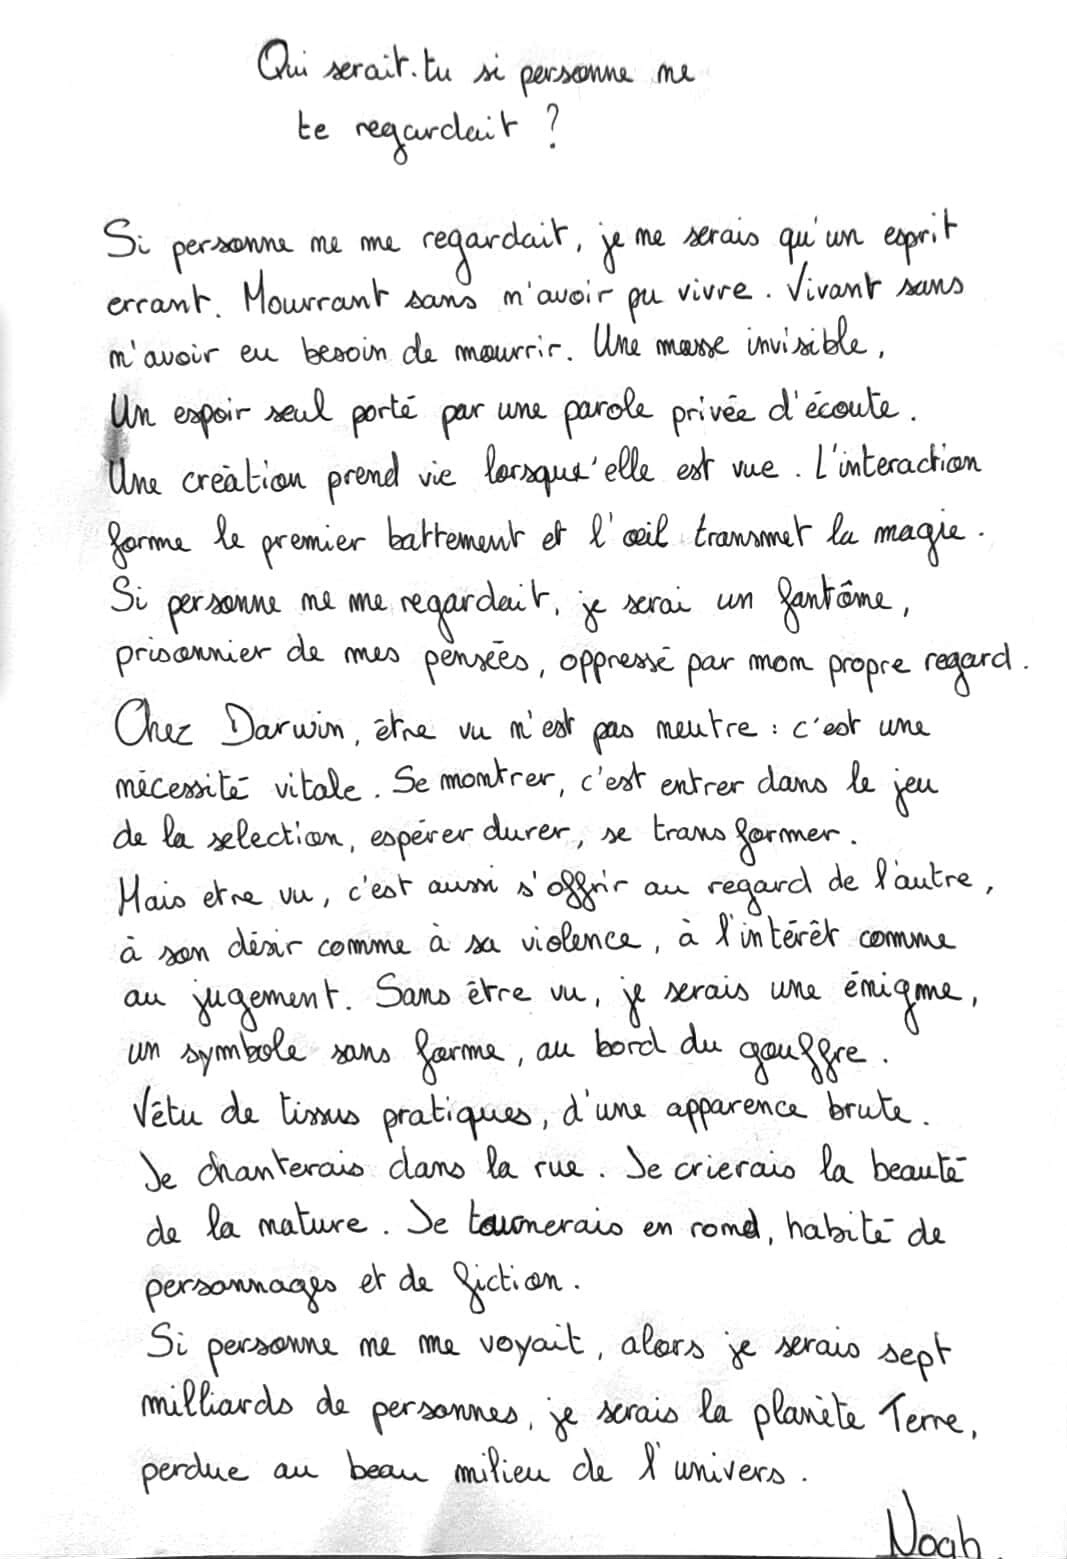 Qui serait-tu si personne ne
te regardait ?
Si personne ne me regardait, je ne serais qu'un esprit
errant. Mourrant sans n'avoir pu vivre. Vivant sans
n'avoir eu besoin de mourrir. Une masse invisible,
Un espoir seul porté par une parole privée d'écoute.
Une création prend vie lorsqu'elle est vue. L'interaction
forme le premier battement et l'œil transmet la magie.
Si personne ne me regardait, je serai un fantôme,
prisonnier de mes pensées, oppressé par mon propre regard.
Chez Darwin, être vu n'est pas neutre : c'est une
nécessité vitale. Se montrer, c'est entrer dans le jeu
de la selection, espérer durer, se transformer.
Mais etre vu, c'est aussi s'offrir au regard de l'autre,
à son désir comme à sa violence, à l'intérêt comme
au jugement. Sans être vu, je serais une énigme,
un symbole sans forme, au bord du gouffre.
Vêtu de tissus pratiques, d'une apparence brute.
Je chanterais dans la rue. Je crierais la beauté
de la nature. Je tournerais en rond, habité de
personnages et de fiction.
Si personne ne me voyait, alors je serais sept
milliards de personnes, je serais la planète Terre,
perdue au beau milieu de l'univers.
Noah.